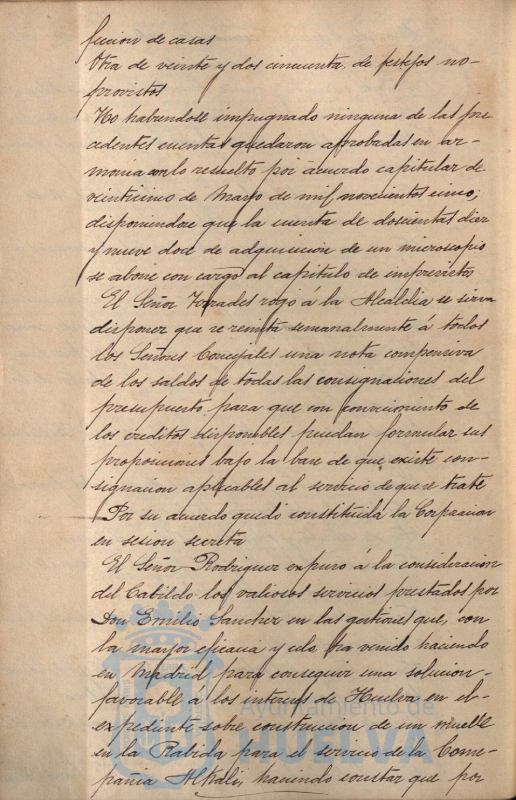 ficion de casas
Otra de veinte y dos cincuenta, de festejos no-
provistos
No habiendose impugnado ninguna de las pre
cedentes cuentas quedaron aprobadas en ar-
monia con lo resuelto por acuerdo capitular de
veintiuno de Mayo de mil novecientos cinco;
disponiendose que la cuenta de doscientas diez
y nueve doce de adquisicion de un microscopio
se abone con cargo al capitulo de imprevistos
El Señor rogó a la Alcaldia se sirva
disponer que se remita semanalmente á todos
los Señores Concejales una nota compensiva
de los saldos de todas las consignaciones del
presupuesto para que con conocimiento de
los creditos disponibles puedan formular sus
proposiciones bajo la base de que existe con-
signacion aplicables al servicio de que se trate
Por su acuerdo quedó constituida la Corporacion
en sesion secreta
El Señor Rodriguez expuso á la consideracion
del Cabildo los valiosos servicios prestados por
Don Emilio Sanchez en las gestiones que, con
la mayor eficacia y celo ha venido haciendo
en Madrid para conseguir una solucion-
favorable a los intereses de Huelva en el-
expediente sobre construccion de un muelle
en la Rabida para el servicio de la Com-
pañia Alkali, haciendo constar que por
Ayuntamiento de
HUELVA